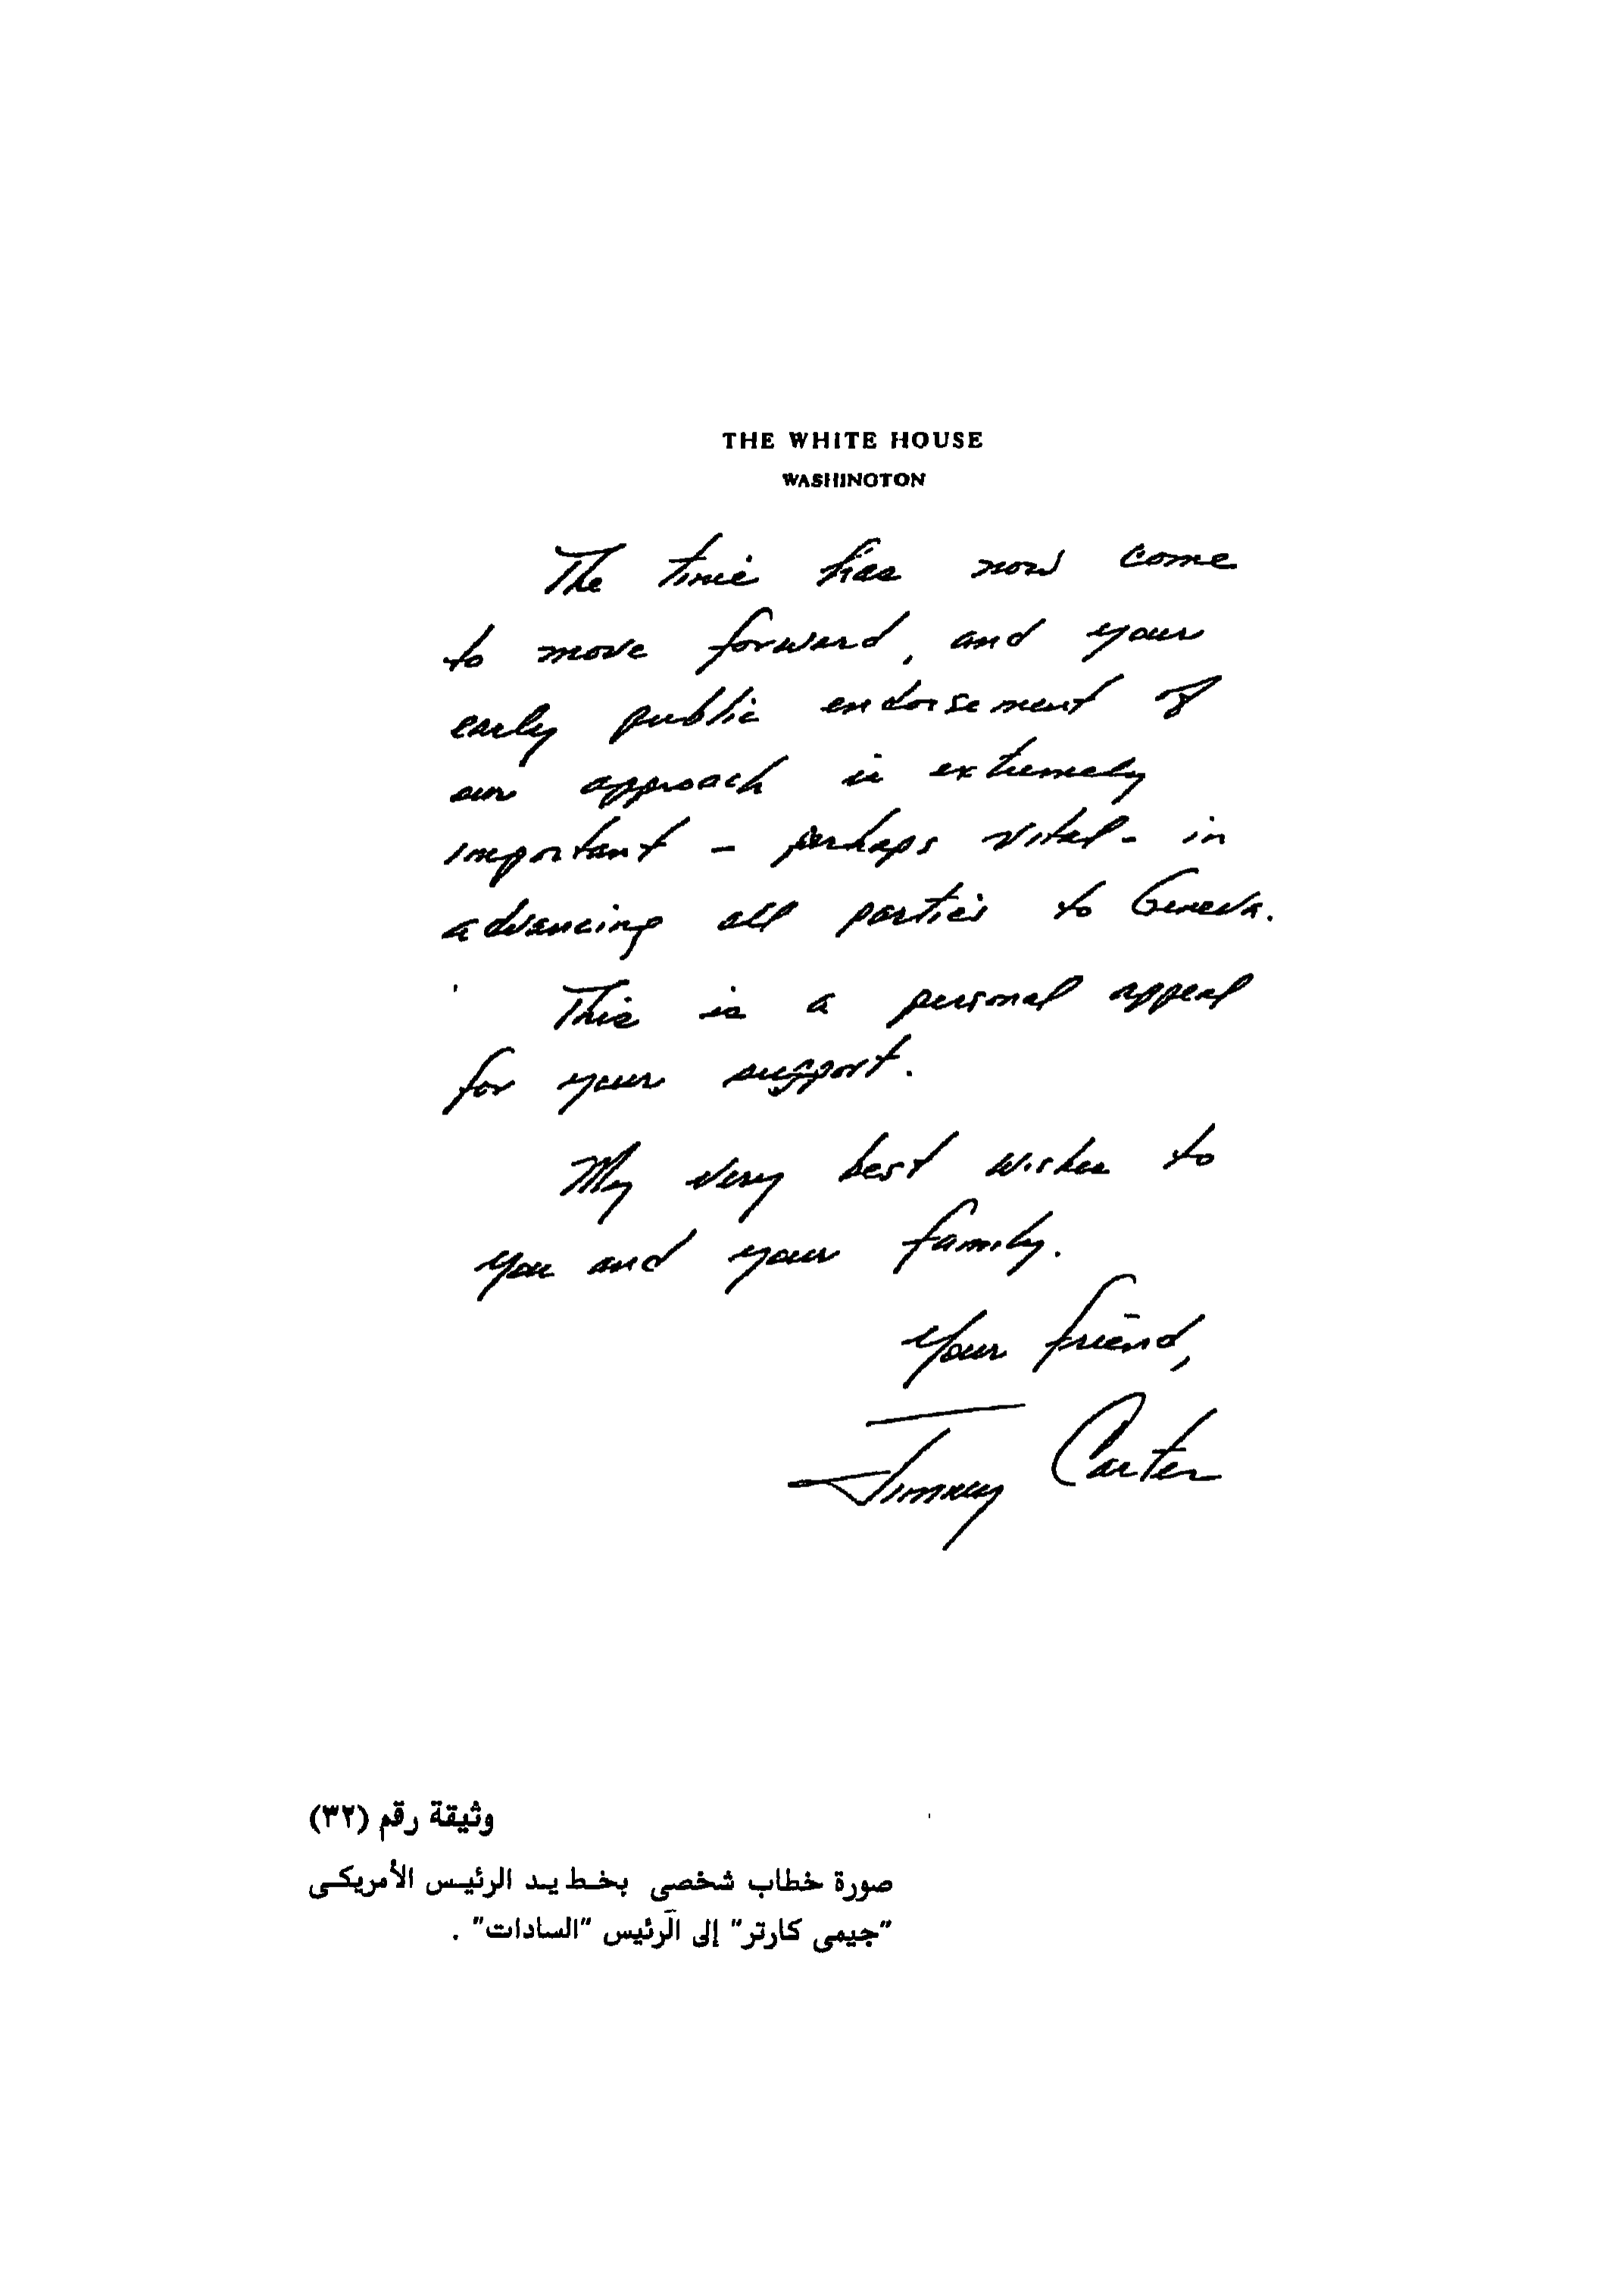 THE WHITE HOUSE
WASHINGTON
The time has now come
to move forward, and your
early public endorsement of
our approach is extremely
important - perhaps vital - in
advancing all parties to Geneva.
This is a personal appeal
for your support.
My very best wishes to
you and your family.
Your friend,
Jimmy Carter
وثيقة رقم (٣٢)
صورة خطاب شخصى بخط يد الرئيس الأمريكى
"جيمى كارتر" إلى الرئيس "السادات" .